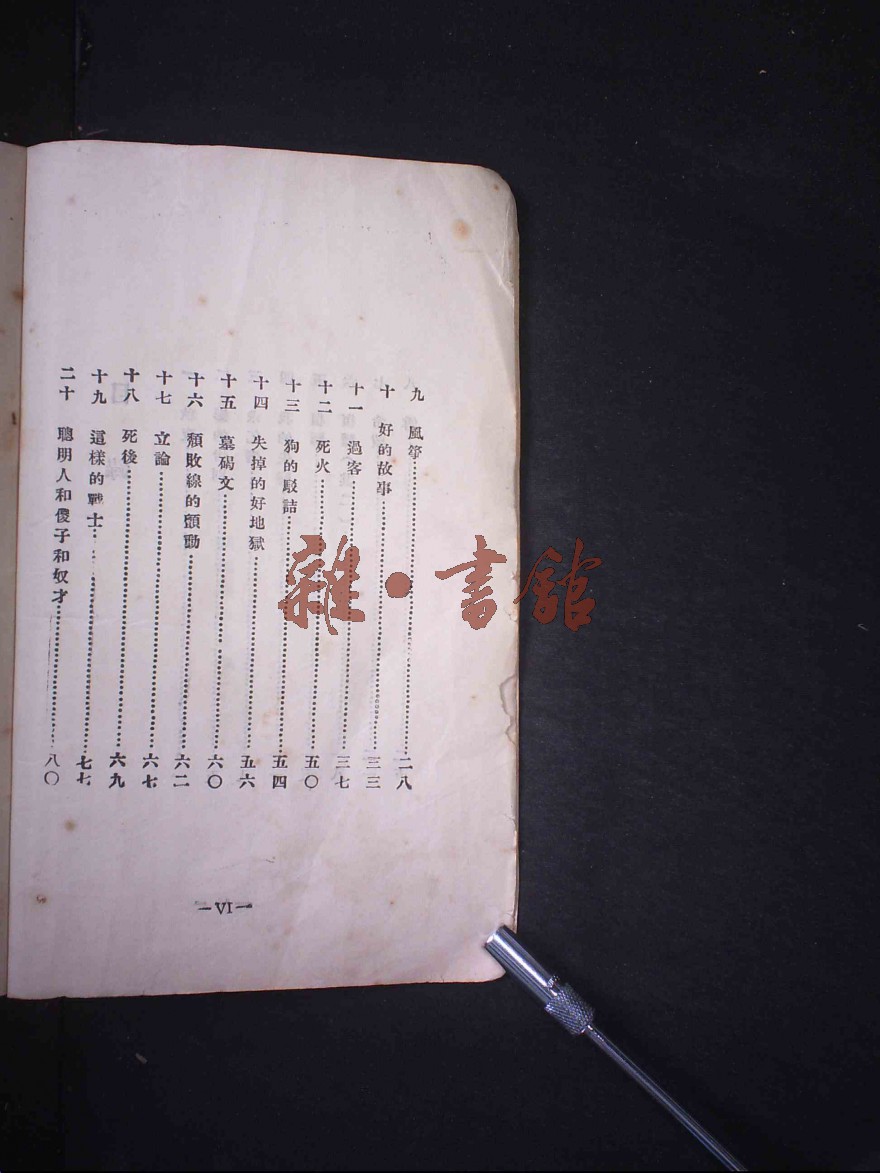 九 風箏 二八
十 好的故事 三三
十一 過客 三七
十二 死火 五〇
十三 狗的駁詰 五四
十四 失掉的好地獄 五六
十五 墓碣文 六〇
十六 頹敗線的顫動 六二
十七 立論 六七
十八 死後 六九
十九 這樣的戰士 七七
二十 聰明人和傻子和奴才 八〇
—VI—
雜·書館